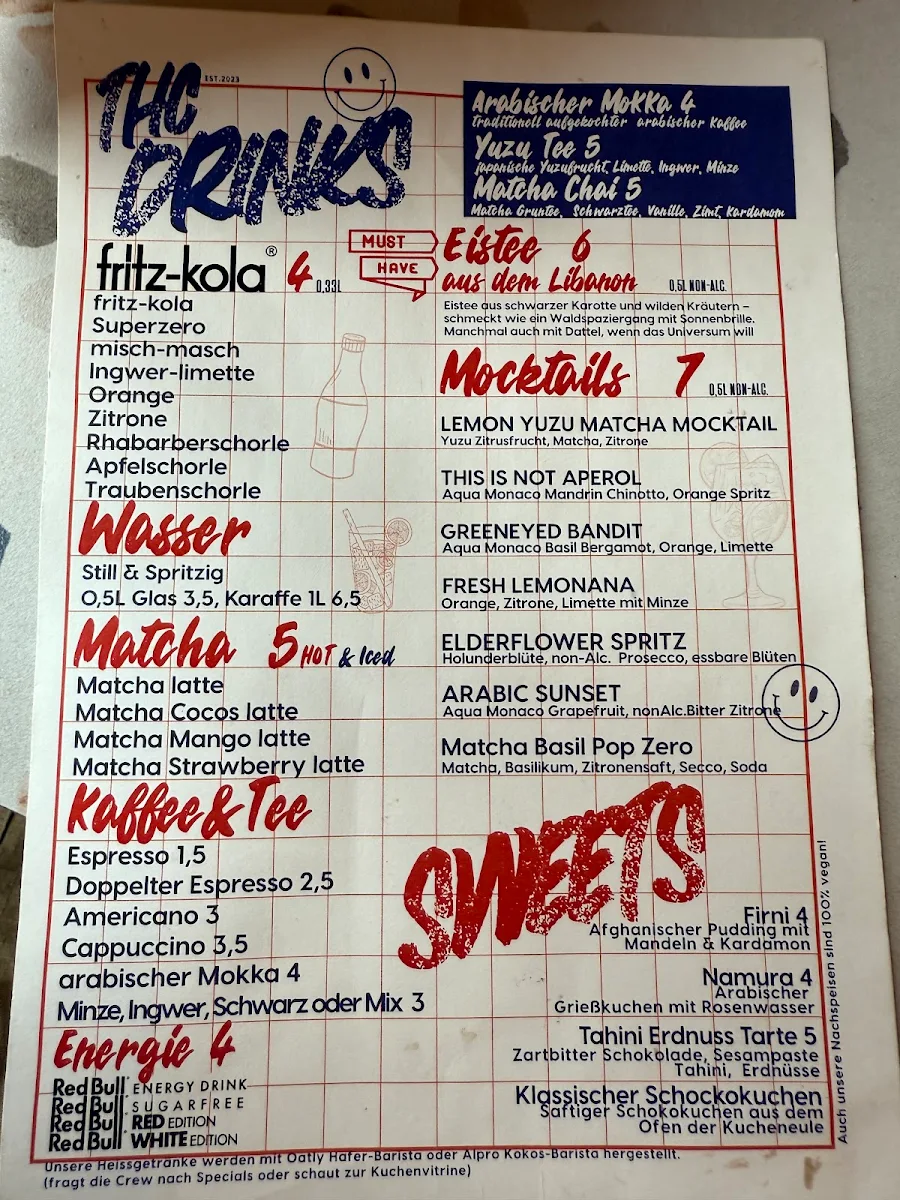 THC
EST.2023
DRINKS
Arabischer Mokka 4
traditionell aufgekochter arabischer Kaffee
Yuzu Tee 5
japanische Yuzufrucht, Limette, Ingwer, Minze
Matcha Chai 5
Matcha Grüntee, Schwarztee, Vanille, Zimt, Kardamom
fritz-kola® 4 0,33L
fritz-kola
Superzero
misch-masch
Ingwer-limette
Orange
Zitrone
Rhabarberschorle
Apfelschorle
Traubenschorle
Wasser
Still & Spritzig
0,5L Glas 3,5, Karaffe 1L 6,5
Matcha 5 HOT & Iced
Matcha latte
Matcha Cocos latte
Matcha Mango latte
Matcha Strawberry latte
Kaffee & Tee
Espresso 1,5
Doppelter Espresso 2,5
Americano 3
Cappuccino 3,5
arabischer Mokka 4
Minze, Ingwer, Schwarz oder Mix 3
Energie 4
Red Bull ENERGY DRINK
Red Bull SUGARFREE
Red Bull RED EDITION
Red Bull WHITE EDITION
MUST
HAVE
Eistee 6
aus dem Libanon 0,5L NON-ALC.
Eistee aus schwarzer Karotte und wilden Kräutern –
schmeckt wie ein Waldspaziergang mit Sonnenbrille.
Manchmal auch mit Dattel, wenn das Universum will
Mocktails 7 0,5L NON-ALC.
LEMON YUZU MATCHA MOCKTAIL
Yuzu Zitrusfrucht, Matcha, Zitrone
THIS IS NOT APEROL
Aqua Monaco Mandrin Chinotto, Orange Spritz
GREENEYED BANDIT
Aqua Monaco Basil Bergamot, Orange, Limette
FRESH LEMONANA
Orange, Zitrone, Limette mit Minze
ELDERFLOWER SPRITZ
Holunderblüte, non-Alc. Prosecco, essbare Blüten
ARABIC SUNSET
Aqua Monaco Grapefruit, nonAlc.Bitter Zitrone
Matcha Basil Pop Zero
Matcha, Basilikum, Zitronensaft, Secco, Soda
SWEETS
Firni 4
Afghanischer Pudding mit
Mandeln & Kardamon
Namura 4
Arabischer
Grießkuchen mit Rosenwasser
Tahini Erdnuss Tarte 5
Zartbitter Schokolade, Sesampaste
Tahini, Erdnüsse
Klassischer Schockokuchen
Saftiger Schokokuchen aus dem
Ofen der Kucheneule
Auch unsere Nachspeisen sind 100% vegan!
Unsere Heissgetränke werden mit Oatly Hafer-Barista oder Alpro Kokos-Barista hergestellt.
(fragt die Crew nach Specials oder schaut zur Kuchenvitrine)